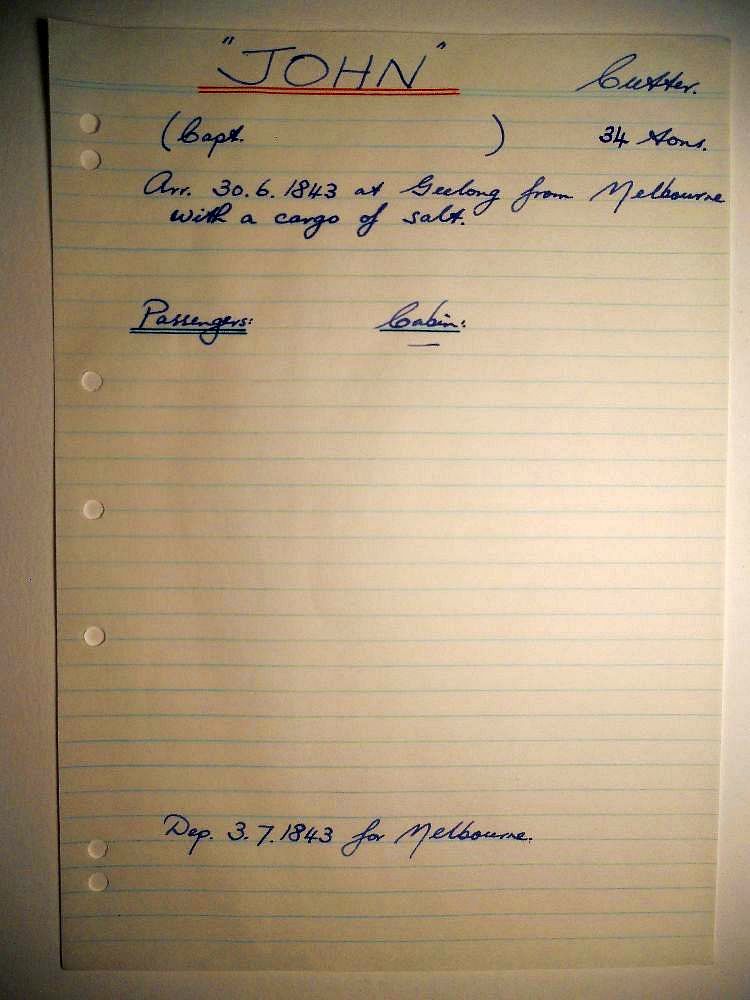 "JOHN" Cutter.
(Capt. ) 34 tons.
Arr. 30.6.1843 at Geelong from Melbourne
with a cargo of salt.
Passengers: Cabin:
—
Dep. 3.7.1843 for Melbourne.